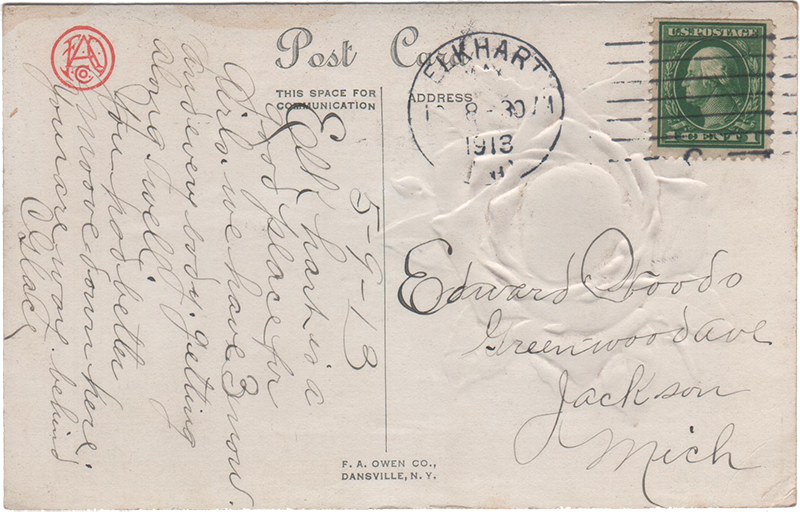 Post Card
THIS SPACE FOR
COMMUNICATION
ADDRESS
ELKHART
MAY
8-30A
1913
U.S. POSTAGE
1 CENT 1
5-9-13
Elk hart is a
good place for
Girls. we have 3 now.
and every body. getting
along. swell.
You had better
moove down here.
your are way behind
Edward Woods
Greenwood Ave
Jackson
Mich
F. A. OWEN CO.,
DANSVILLE, N. Y.